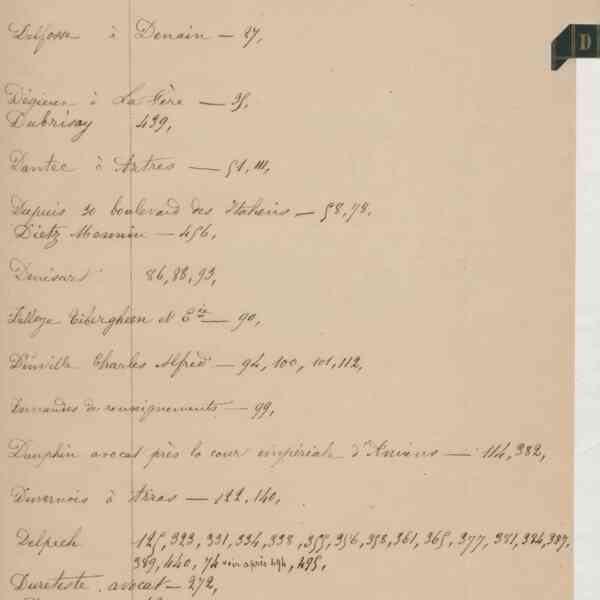 D
Delfosse à Denain — 27,
à La Fère — 35,
Dubrisay 439,
Dantec à Artres — 51, 111,
Dupuis 30 boulevard des Italiens — 58, 78,
Dietz Monnin — 456,
Denisart 86, 88, 93,
Delloye Tiberghien et Cie — 90,
Dinville Charles Alfred — 94, 100, 101, 112,
Demandes de renseignements — 99,
Dauphin avocat près la cour impériale d'Amiens — 114, 382,
Duvernois à Arras — 122, 140,
Delpech 125, 323, 331, 334, 338, 355, 356, 358, 361, 365, 377, 381, 384, 387,
389, 440, 74 après 494, 495,
Dureteste avocat — 272,